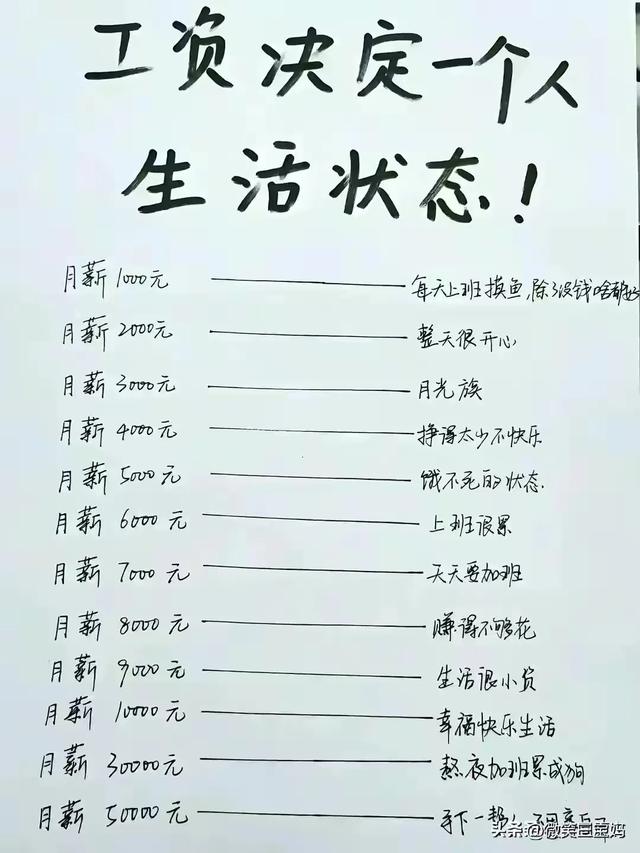 工资决定一个人
生活状态!
月薪1000元 每天上班摸鱼,除了没钱啥都好
月薪 2000元 整天很开心
月薪 3000元 月光族
月薪 4000元 挣得太少不快乐
月薪 5000元 饿不死的状态.
月薪 6000 元 上班很累
月薪 7000 元 天天要加班
月薪 8000 元 赚得不够花
月薪 9000 元 生活很小资
月薪 10000 元 幸福快乐生活
月薪 30000元 熬夜加班累成狗
月薪 50000 元 手下一帮
头条@微笑白宝妈